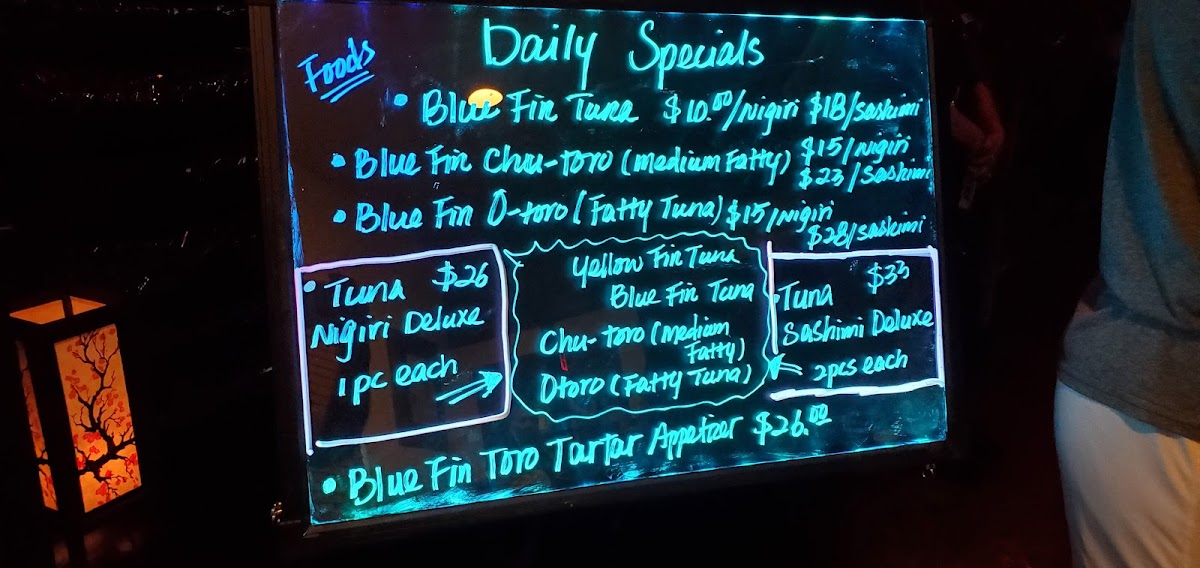 Daily Specials
Foods
• Blue Fin Tuna $10.00/Nigiri $18/sashimi
• Blue Fin Chu-toro (medium Fatty) $15/Nigiri
$23/Sashimi
• Blue Fin O-toro (Fatty Tuna) $15/Nigiri
$28/sashimi
• Tuna $26
Nigiri Deluxe
1 pc each
Yellow Fin Tuna
Blue Fin Tuna
Chu-toro (medium
Fatty)
Otoro (Fatty Tuna)
• Tuna $33
Sashimi Deluxe
2pcs each
• Blue Fin Toro Tartar Appetizer $26.00